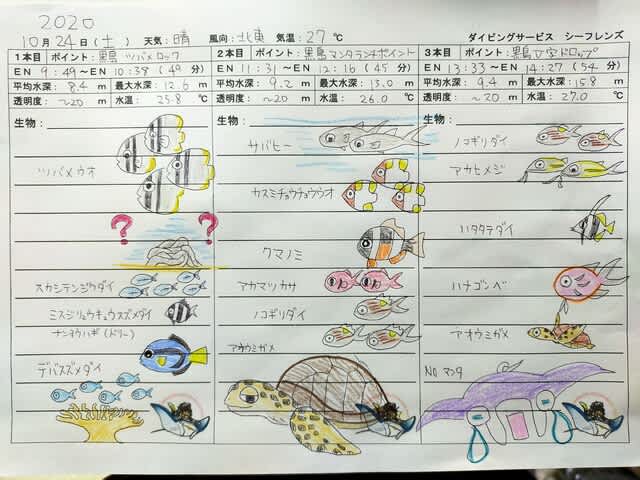 2020
10月24日(土) 天気:晴 風向:北東 気温:27℃ ダイビングサービス シーフレンズ
1本目 ポイント:黒島 ツバメロック
EN 9:49～EN 10:38 (49分)
平均水深: 8.4 m 最大水深: 12.6 m
透明度: ～20m 水温: 25.8 ℃
生物:
ツバメウオ
? ?
スカシテンジクダイ
ミスジリュウキュウスズメダイ
ナンヨウハギ(ドリー)
デバスズメダイ
2本目 ポイント:黒島マンタランチポイント
EN 11:31～EN 12:16 (45分)
平均水深: 9.2 m 最大水深: 13.0 m
透明度: ～20m 水温: 26.0 ℃
生物:
サバヒー
カスミチョウチョウウオ
クマノミ
アカマツカサ
ノコギリダイ
アオウミガメ
3本目 ポイント:黒島V字ドロップ
EN 13:33～EN 14:27 (54分)
平均水深: 9.4 m 最大水深: 15.8 m
透明度: ～20m 水温: 27.0 ℃
生物:
ノコギリダイ
アカヒメジ
ハタタテダイ
ハナゴンベ
アオウミガメ
No マンタ